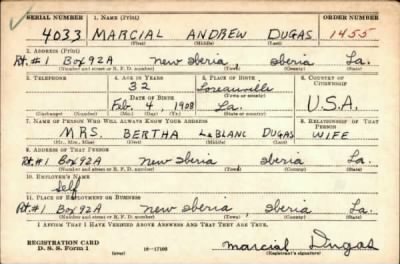 SERIAL NUMBER 1. NAME (Print) ORDER NUMBER
4033 MARCIAL ANDREW DUGAS 1455
(First) (Middle) (Last)
2. ADDRESS (Print)
Rt. #1 Box 92A New Iberia, Iberia La.
(Number and street or R. F. D. number) (Town) (County) (State)
3. TELEPHONE 4. AGE IN YEARS 5. PLACE OF BIRTH 6. COUNTRY OF CITIZENSHIP
32 Loreauville
DATE OF BIRTH (Town or county)
Feb. 4, 1908 La. U.S.A.
(Exchange) (Number) (Mo.) (Day) (Yr.) (State or country)
7. NAME OF PERSON WHO WILL ALWAYS KNOW YOUR ADDRESS 8. RELATIONSHIP OF THAT PERSON
MRS. BERTHA LeBLANC DUGAS WIFE
(Mr., Mrs., Miss) (First) (Middle) (Last)
9. ADDRESS OF THAT PERSON
Rt. #1 Box 92A New Iberia Iberia La.
(Number and street or R. F. D. number) (Town) (County) (State)
10. EMPLOYER'S NAME
Self
11. PLACE OF EMPLOYMENT OR BUSINESS
Rt. #1 Box 92A New Iberia, Iberia, La.
(Number and street or R. F. D. number) (Town) (County) (State)
I AFFIRM THAT I HAVE VERIFIED ABOVE ANSWERS AND THAT THEY ARE TRUE.
REGISTRATION CARD
D. S. S. Form 1 (over) 16—17105 Marcial Dugas
(Registrant's signature)